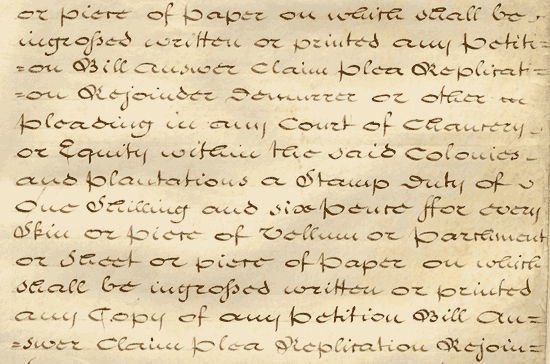 or piece of Paper on which shall be
ingrossed written or printed any Petiti-
=on Bill Answer Claim Plea Replicati-
=on Rejoinder Demurrer or other
Pleading in any Court of Chancery
or Equity within the said Colonies
and Plantations a Stamp Duty of
One Shilling and sixPence ffor every
Skin or Piece of Vellum or Parchment
or Sheet or piece of Paper on which
shall be ingrossed written or printed
any Copy of any Petition Bill An=
=swer Claim Plea Replication Rejoin=